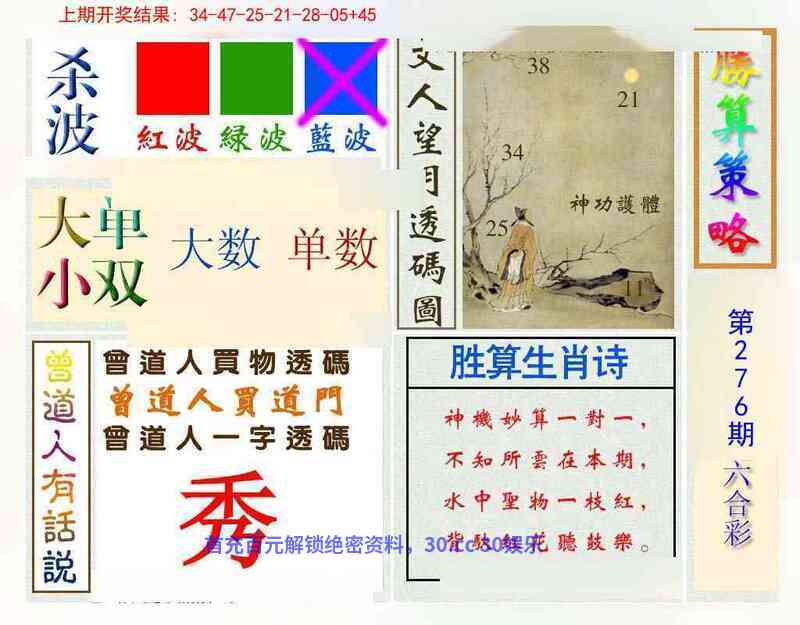 上期开奖结果：34-47-25-21-28-05+45
杀波
紅波 緑波 藍波
大单小双
大数 单数
文人望月透碼圖
38
21
34
神功護體
25
11
勝算策略
第276期
六合彩
曾道人有話説
曾道人買物透碼
曾道人買道門
曾道人一字透碼
秀
胜算生肖诗
神機妙算一對一，
不知所雲在本期，
水中聖物一枝紅，
花聽鼓樂。
首充百元解锁绝密资料，30.cc 30娱乐